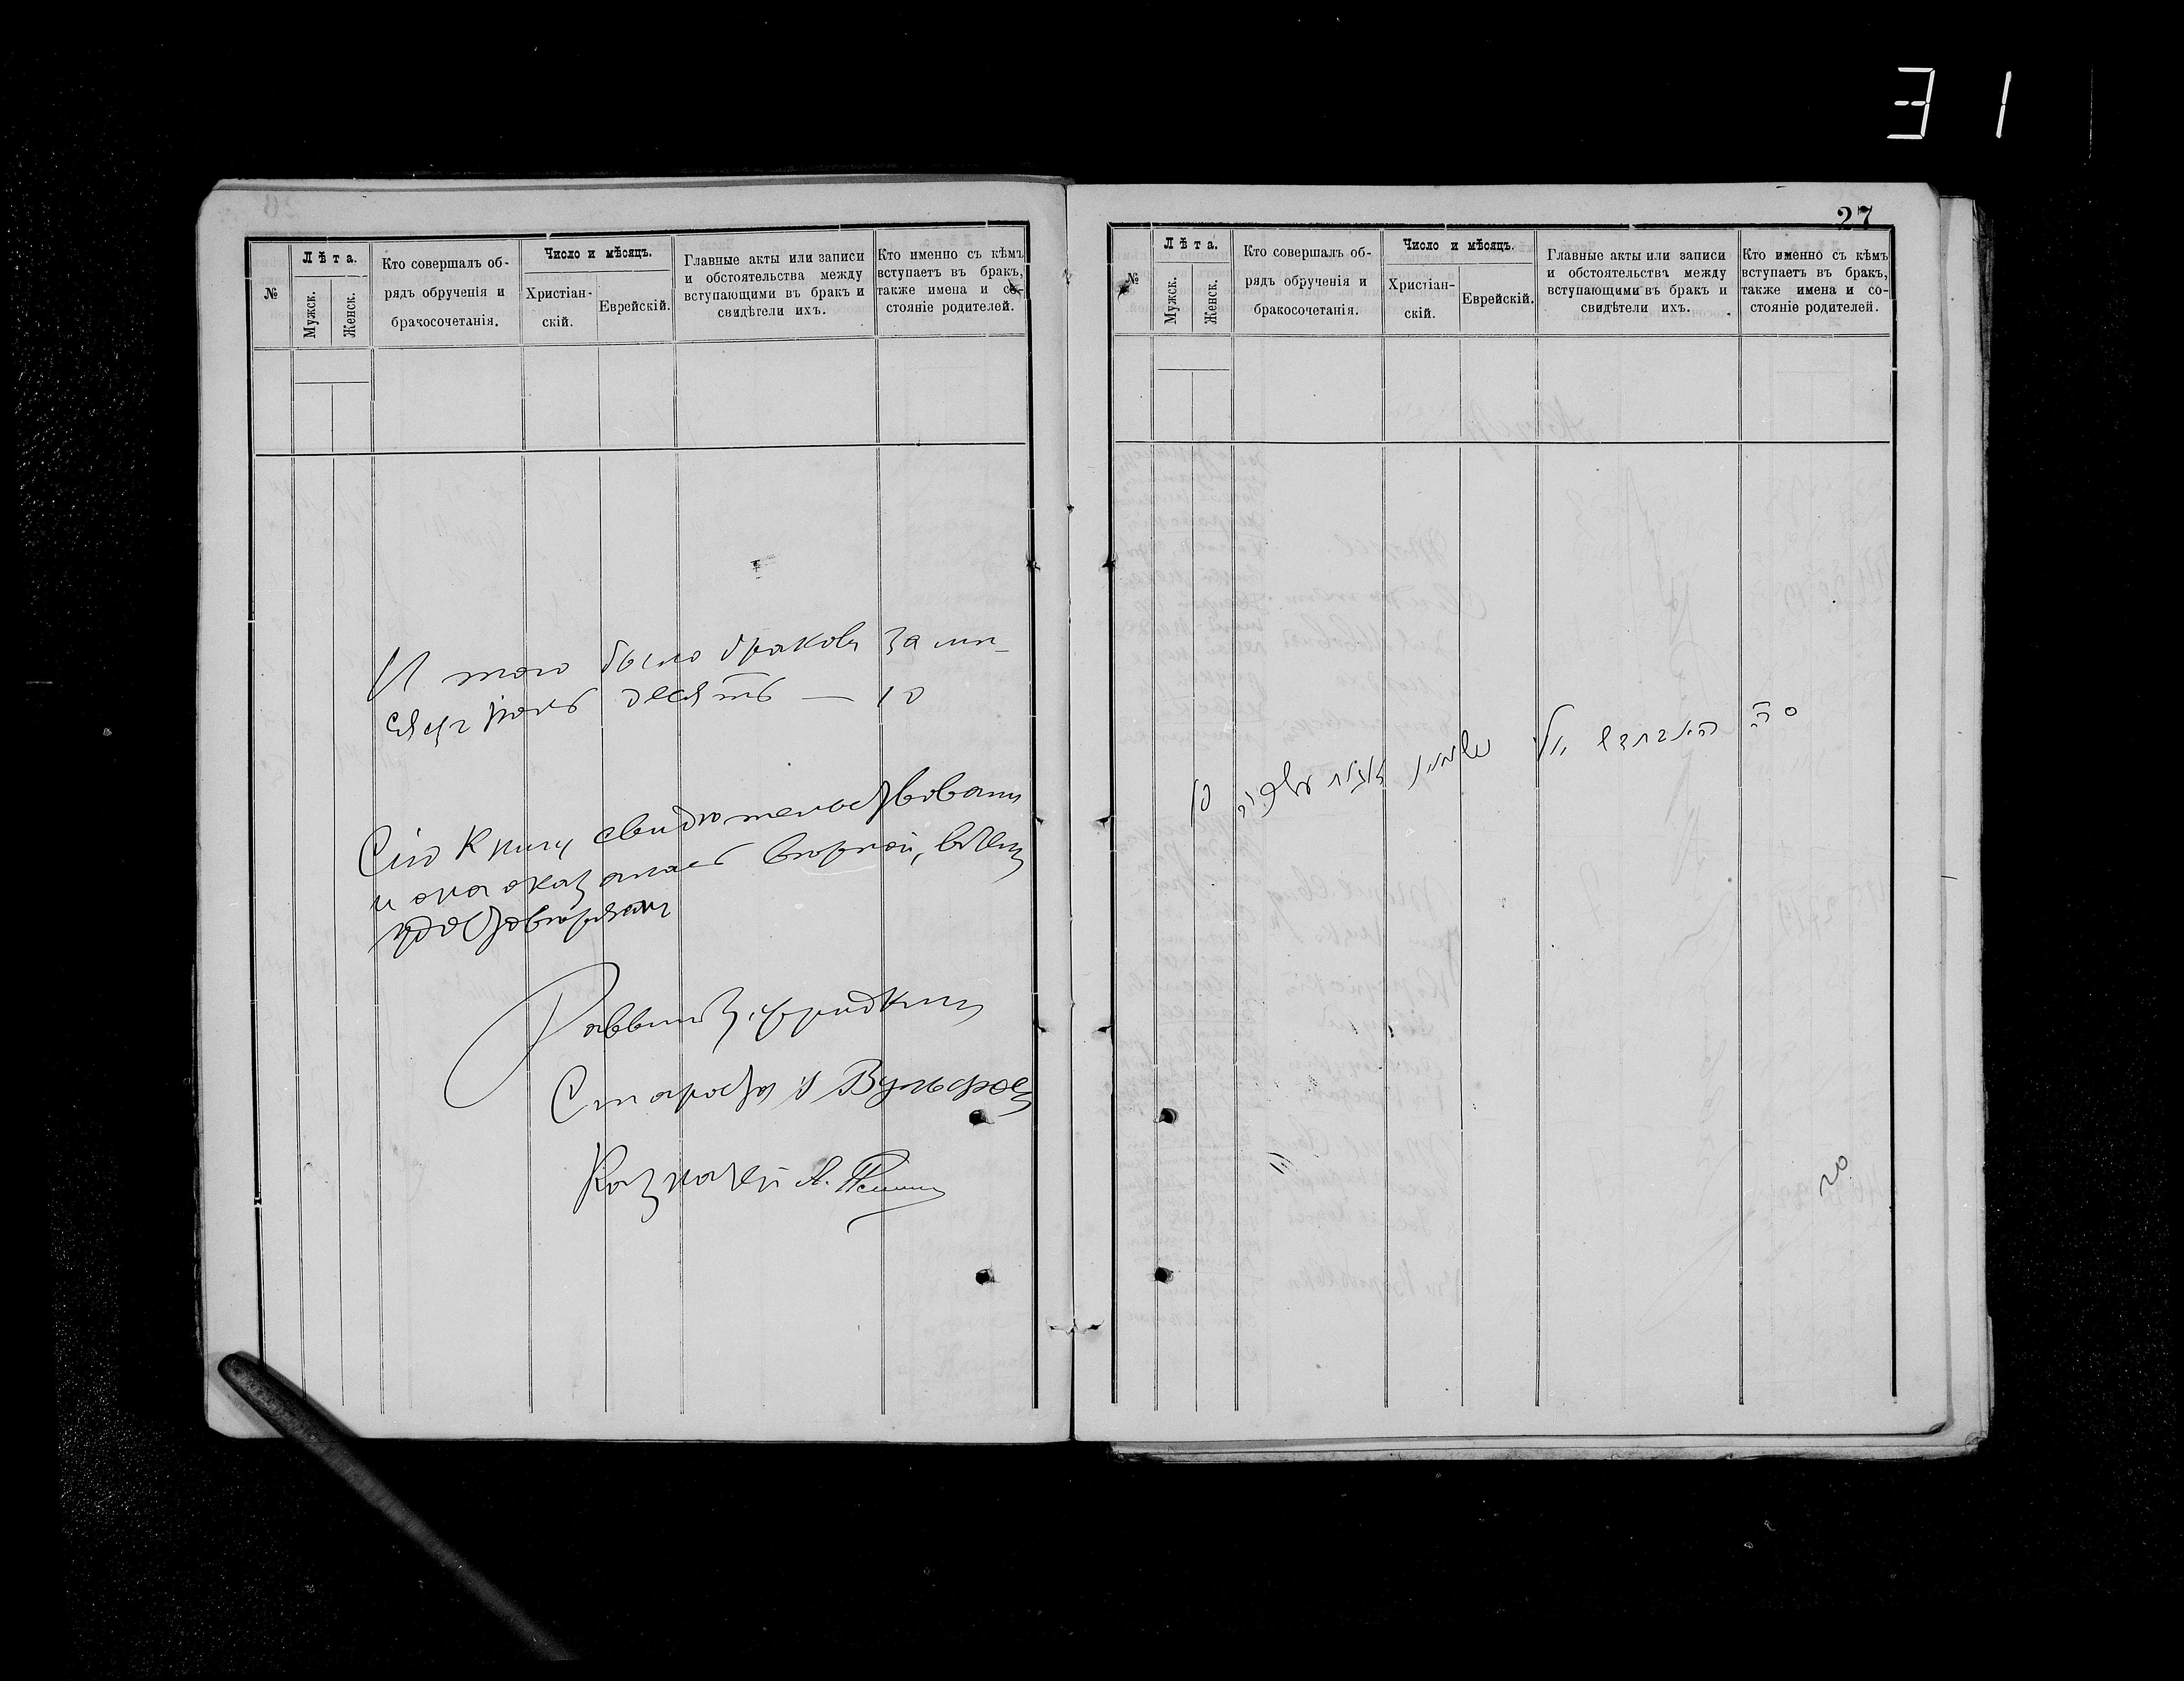 31
№
Лѣта.
Мужск.
Женск.
Кто совершалъ об-
рядъ обрученія и
бракосочетанія.
Число и мѣсяцъ.
Христіан-
скій.
Еврейскій.
Главные акты или записи
и обстоятельства между
вступающими въ бракъ и
свидѣтели ихъ.
Кто именно съ кѣмъ
вступаетъ въ бракъ,
также имена и со-
стояніе родителей.
И того было браковъ за мѣ-
сяцъ десять — 10
Сію книгу свидѣтельствовали
и она оказалась вѣрной, въ чемъ
удостовѣряемъ
Раввинъ Фридкинъ
Староста Вульфъ
Казначей А.
27
№
Лѣта.
Мужск.
Женск.
Кто совершалъ об-
рядъ обрученія и
бракосочетанія.
Число и мѣсяцъ.
Христіан-
скій.
Еврейскій.
Главные акты или записи
и обстоятельства между
вступающими въ бракъ и
свидѣтели ихъ.
Кто именно съ кѣмъ
вступаетъ въ бракъ,
также имена и со-
стояніе родителей.
סה